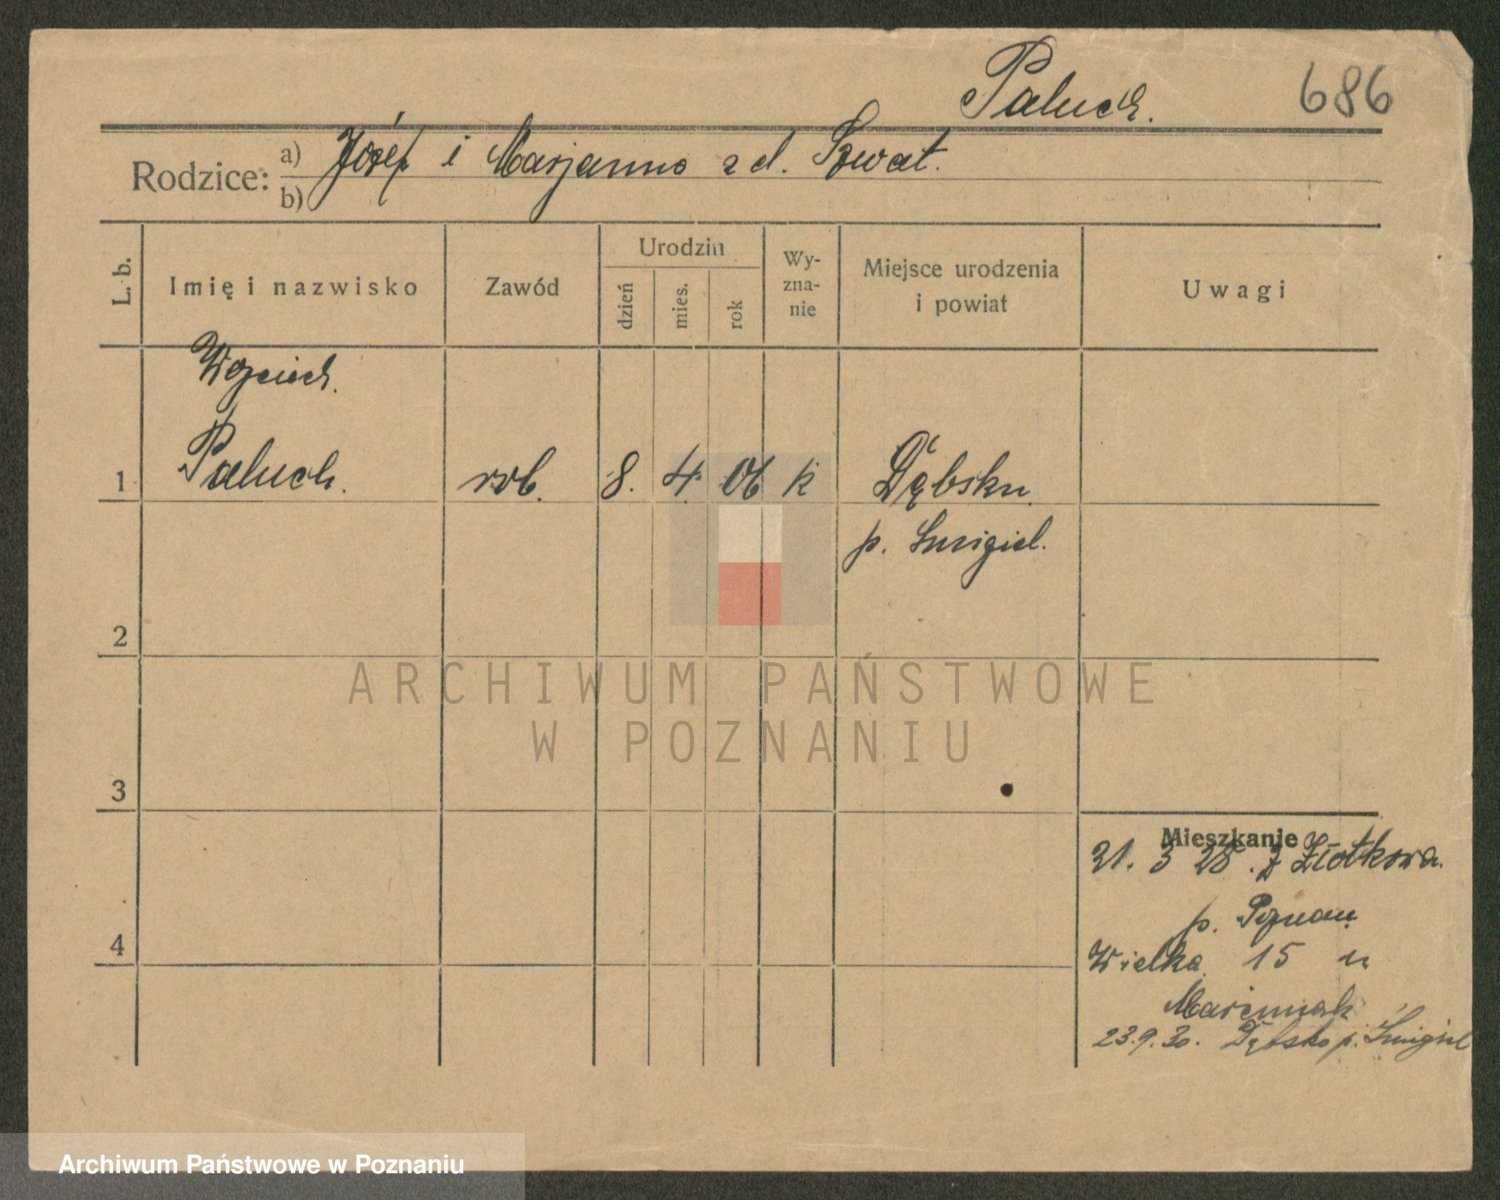 Paluch. 686
Rodzice: a) Józef i Marjanna z d. Szwat.
b)
L. b. Imię i nazwisko Zawód Urodzin Wy-
zna-
nie Miejsce urodzenia
i powiat Uwagi
dzień mies. rok
Wojciech.
1 Paluch. rob. 8. 4. 06 k Dębsku.
p. Smigiel.
2
ARCHIWUM PAŃSTWOWE
W POZNANIU
3
Mieszkanie
21. 3 28. z Złotkowa.
p. Poznań.
4 Wielka 15 u
23.9.30. Dębsko p. Śmigiel
Archiwum Państwowe w Poznaniu